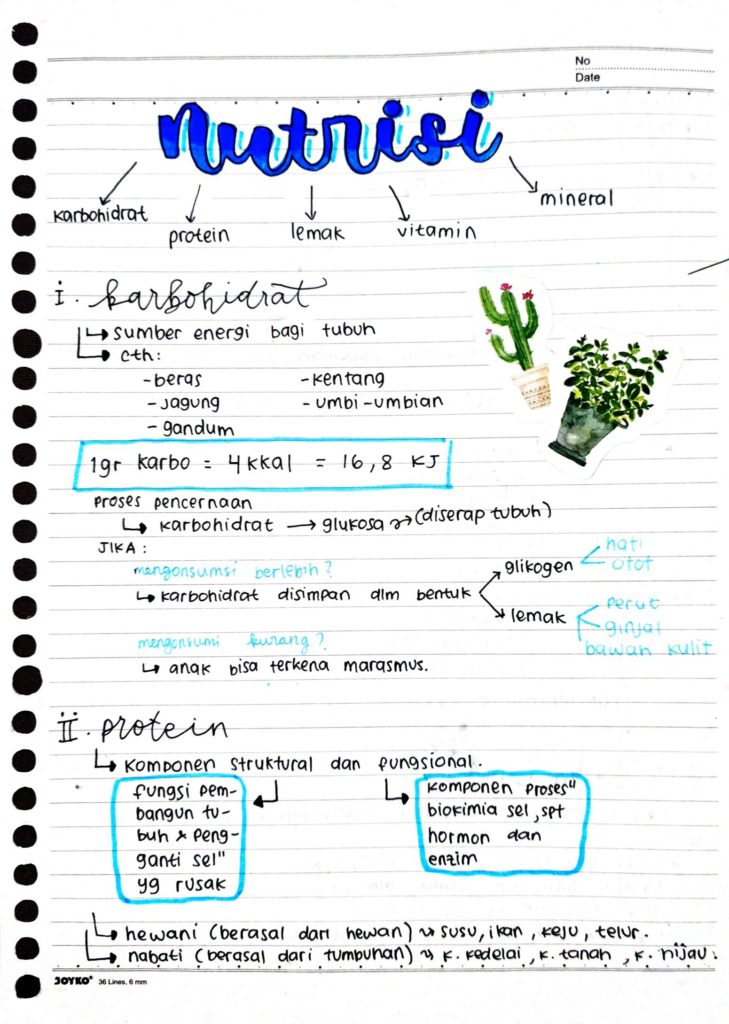 No
Date
nutrisi
karbohidrat
protein
lemak
vitamin
mineral
i. karbohidrat
↳ sumber energi bagi tubuh
↳ cth:
- beras - kentang
- jagung - umbi-umbian
- gandum
1gr karbo = 4 kkal = 16,8 KJ
proses pencernaan
↳ karbohidrat → glukosa ↝ (diserap tubuh)
JIKA:
mengonsumsi berlebih?
↳ karbohidrat disimpan dlm bentuk
glikogen
hati
otot
lemak
perut
ginjal
bawah kulit
mengonsumi kurang?
↳ anak bisa terkena marasmus.
ii. protein
↳ komponen struktural dan fungsional.
fungsi pem-
bangun tu-
buh & peng-
ganti sel"
yg rusak
komponen proses"
biokimia sel, spt
hormon dan
enzim
↳ hewani (berasal dari hewan) ↝ susu, ikan, keju, telur.
↳ nabati (berasal dari tumbuhan) ↝ k. kedelai, k. tanah, k. hijau.
JOYKO® 36 Lines, 6 mm